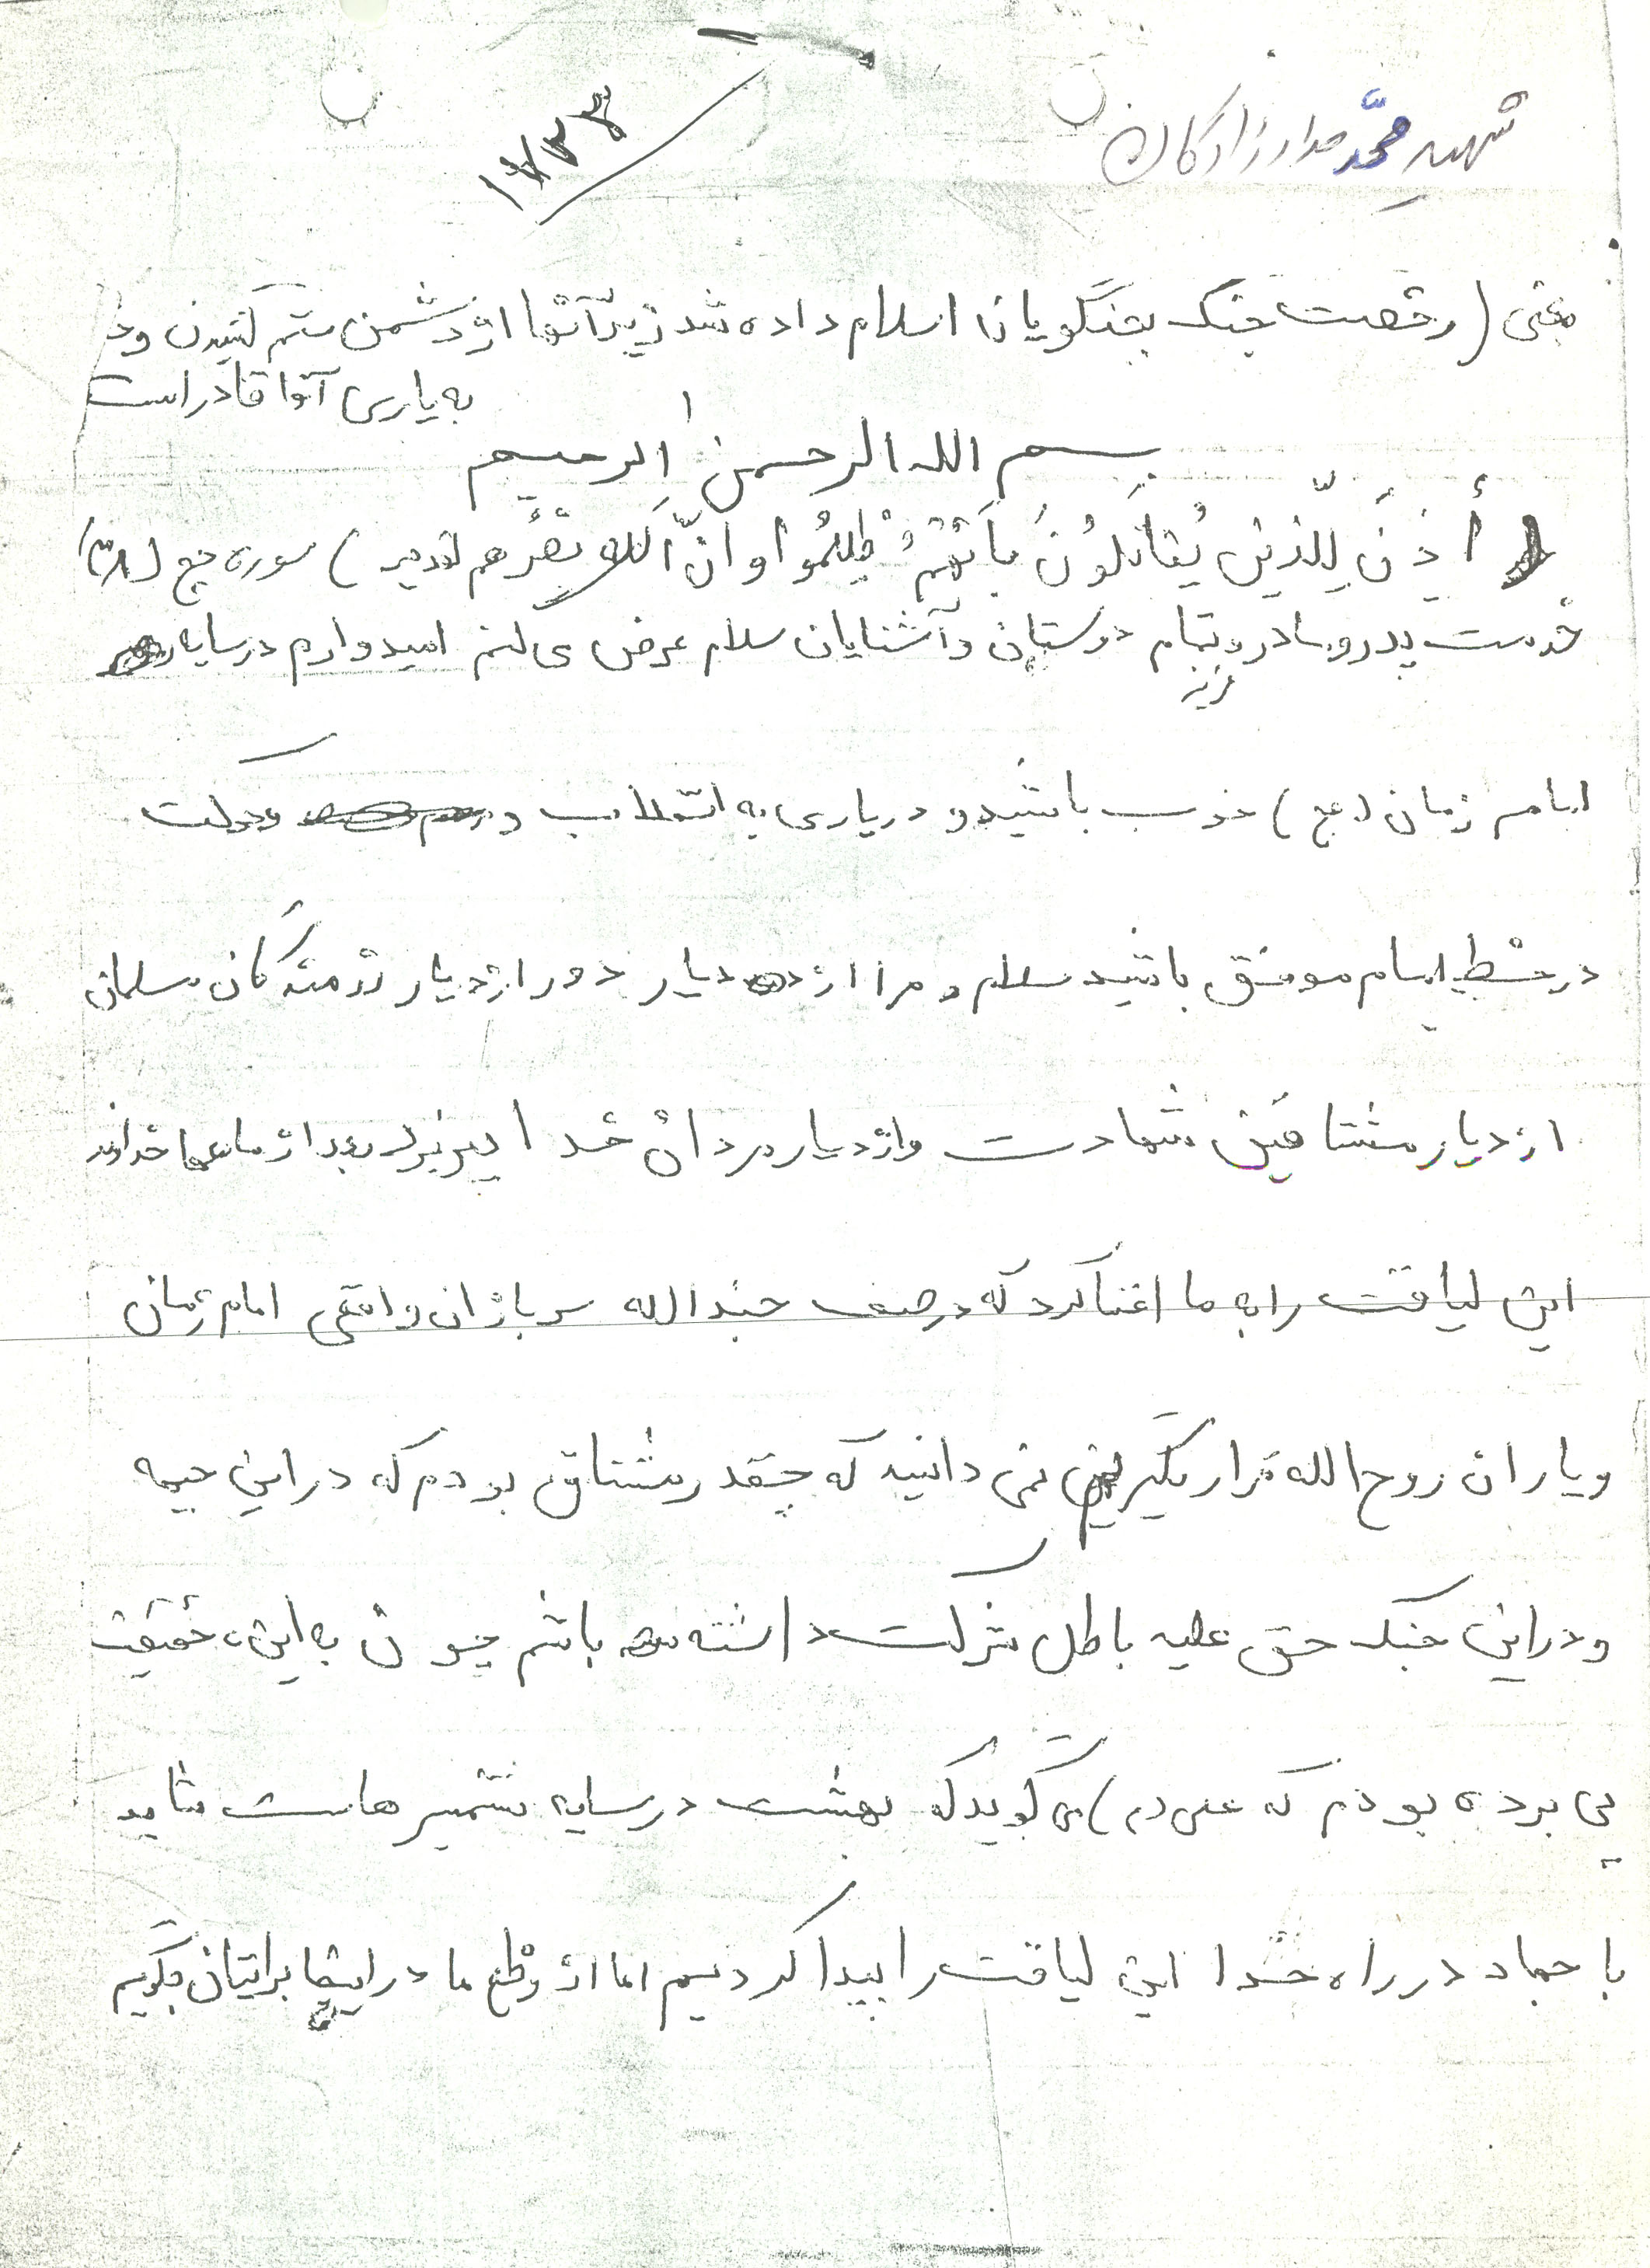 شهید محمد مرادزادگان
۱۷۳۳
معنی (رخصت جنگ بجنگویان اسلام داده شد زیرا آنها از دشمن ستم کشیدن و خدا
به یاری آنها قادر است
بسم الله الرحمن الرحیم
أُذِنَ لِلَّذینَ یُقاتَلُونَ بِاَنَّهُمْ ظُلِمُوا وانَّ اَللهَ نصْرِهم لقدیر) سوره حج (۳۸)
خدمت پدر و مادر و تمام دوستان و آشنایان سلام عرض می کنم امیدوارم در سایه
عزیز
امام زمان (عج) خوب باشید و در یاری به انقلاب و حرکت
در خط امام موفق باشید سلام مرا از دیار دور از دیار رزمندگان مسلمان
از دیار مشتاقین شهادت و از دیار مردان خدا بپذیرید بعد از ماهها خداوند
این لیاقت را به ما اعتا کرد که در صف جندالله سربازان واقعی امام زمان
و یاران روح الله قرار بگیریم نمی دانید که چقدر مشتاق بودم که در این جبهه
و در این جنگ حق علیه باطل شرکت داشته باشم چون به این حقیقت
پی برده بودم که علی (ع) می گوید که بهشت در سایه شمشیرهاست شاید
با جهاد در راه خدا این لیاقت را پیدا کردیم اما از وظع ما در اینجا برایتان بگویم